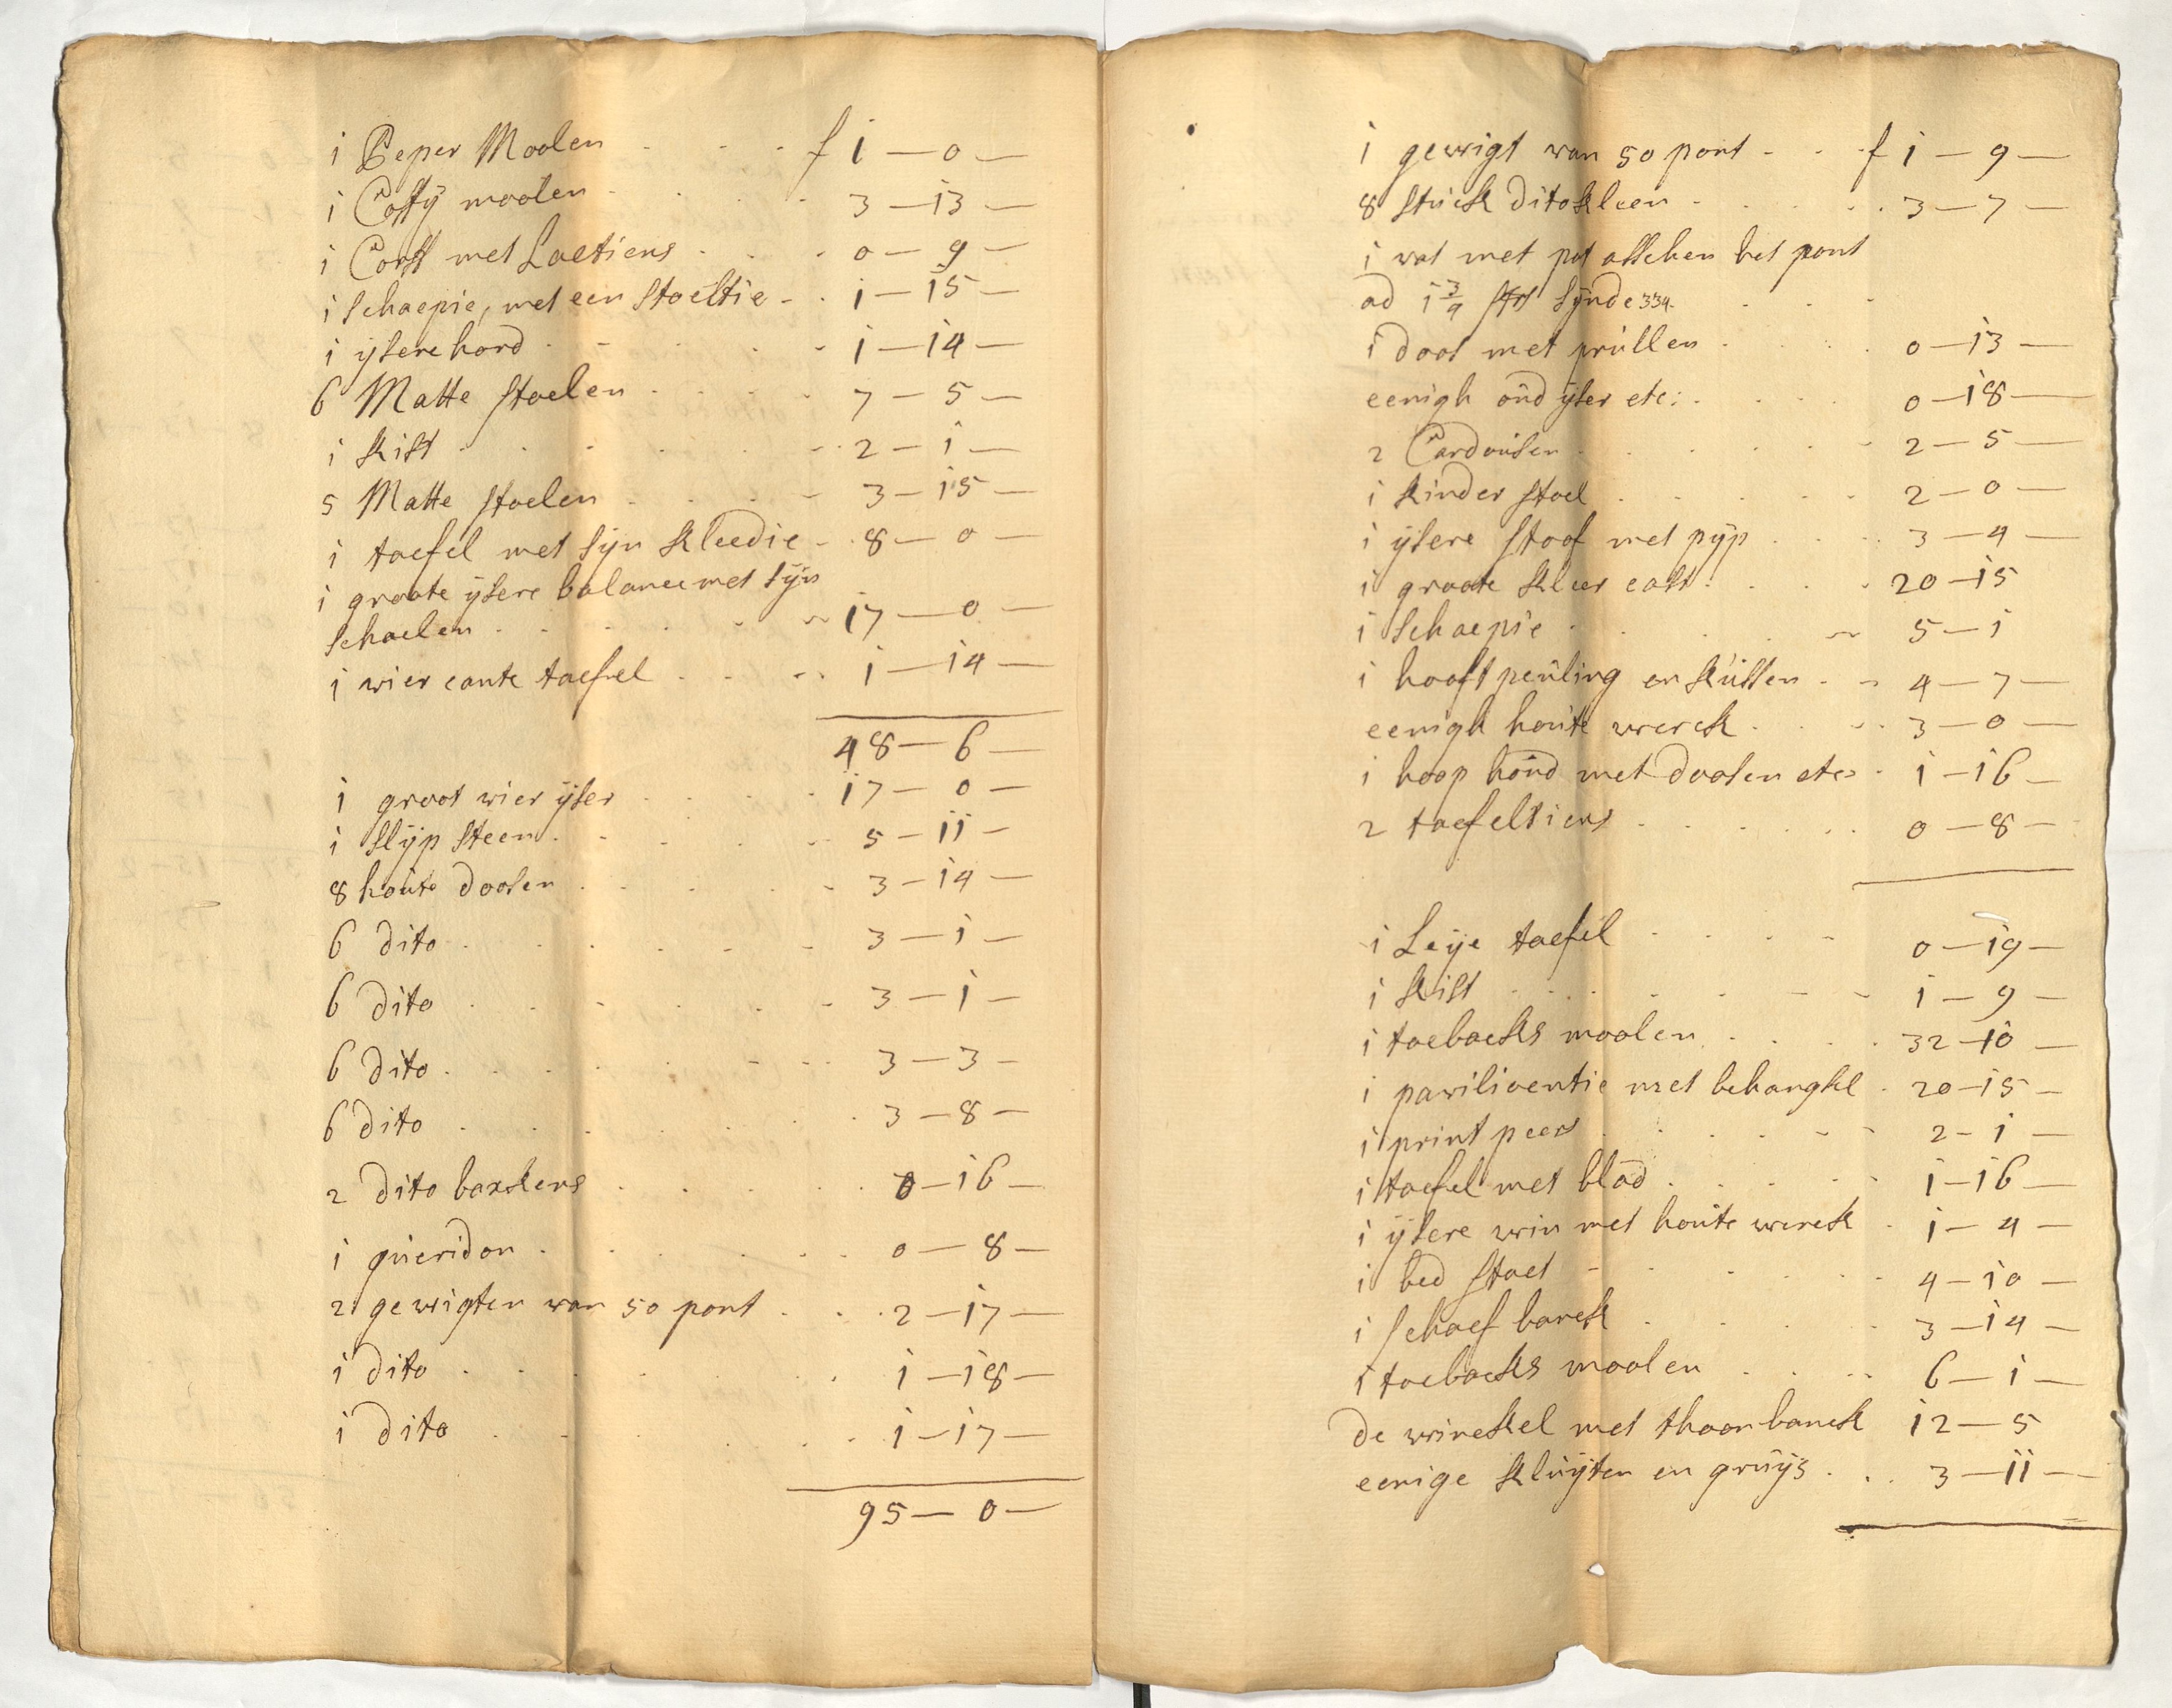 i Peper Moolen . . . f i — 0 —
i Coffÿ moolen . . . . 3 — i3 —
i Corff met Laetiens . . . 0 — 9 —
i schaepie, met een stoeltie - . i — i5 —
i ÿsere hord . . . . . i — i4 —
6 Matte stoelen . . . . 7 — 5 —
i kist . . . . . . 2 — i —
5 Matte stoelen . . . . 3 — i5 —
i taefel met sijn kleedie - . 8 — 0 —
i groote ÿsere balance met sÿn
schaelen . . . . . i7 — 0 —
i wier cante taefvel . . . . i — i4 —
48 — 6 —
i groot wier ÿser . . . . i7 — 0 —
i slÿp steen . . . . . 5 — ii —
8 houte doosen . . . . . 3 — i4 —
6 dito . . . . . . 3 — i —
6 dito . . . . . . 3 — i —
6 dito . . . . . . 3 — 3 —
6 dito . . . . . . 3 — 8 —
2 dito backens . . . . . 0 — i6 —
i gueridon . . . . . . 0 — 8 —
2 gewigten van 50 pont . . . 2 — i7 —
i dito . . . . . . i — i8 —
i dito . . . . . . i — i7 —
95 — 0 —
i gewigt van 50 pont - . . f i — 9 —
8 stuck dito kleen . . . . . 3 — 7 —
i vat met pot asschen het pont
ad i 3/4 sijnde 334 . . .
i doos met prullen . . . . 0 — i3 —
eenigh oud ÿser etc: . . . . 0 — i8 —
2 Cardousen . . . . . . 2 — 5 —
i kinder stoel . . . . . 2 — 0 —
i ÿsere stoof met pÿp . . . . 3 — 4 —
i groote kleer cast . . . . 20 — i5
i schaepie . . . . . 5 — i
i hooft peuling en kussen . . 4 — 7 —
eenigh houte werck . . . . 3 — 0 —
i hoop houd met doosen etc: . i — i6 —
2 taefeltiens . . . . . . 0 — 8 —
i Leÿe taefel . . . . 0 — i9 —
i kist . . . . . . i — 9 —
i toebacks moolen . . . . 32 — i0 —
i pawilioentie met behanghsel . 20 — i5 —
i print peers . . . . . 2 — i —
i taefel met blad . . . . . i — i6 —
i ÿsere win met houte werck . i — 4 —
i bed staet . . . . . . 4 — i0 —
i schaef banck . . . . . 3 — i4 —
i toebacks moolen . . . . 6 — i —
de winckel met thoonbanck i2 — 5
eenige kluÿten en gruÿs . . . 3 — ii —